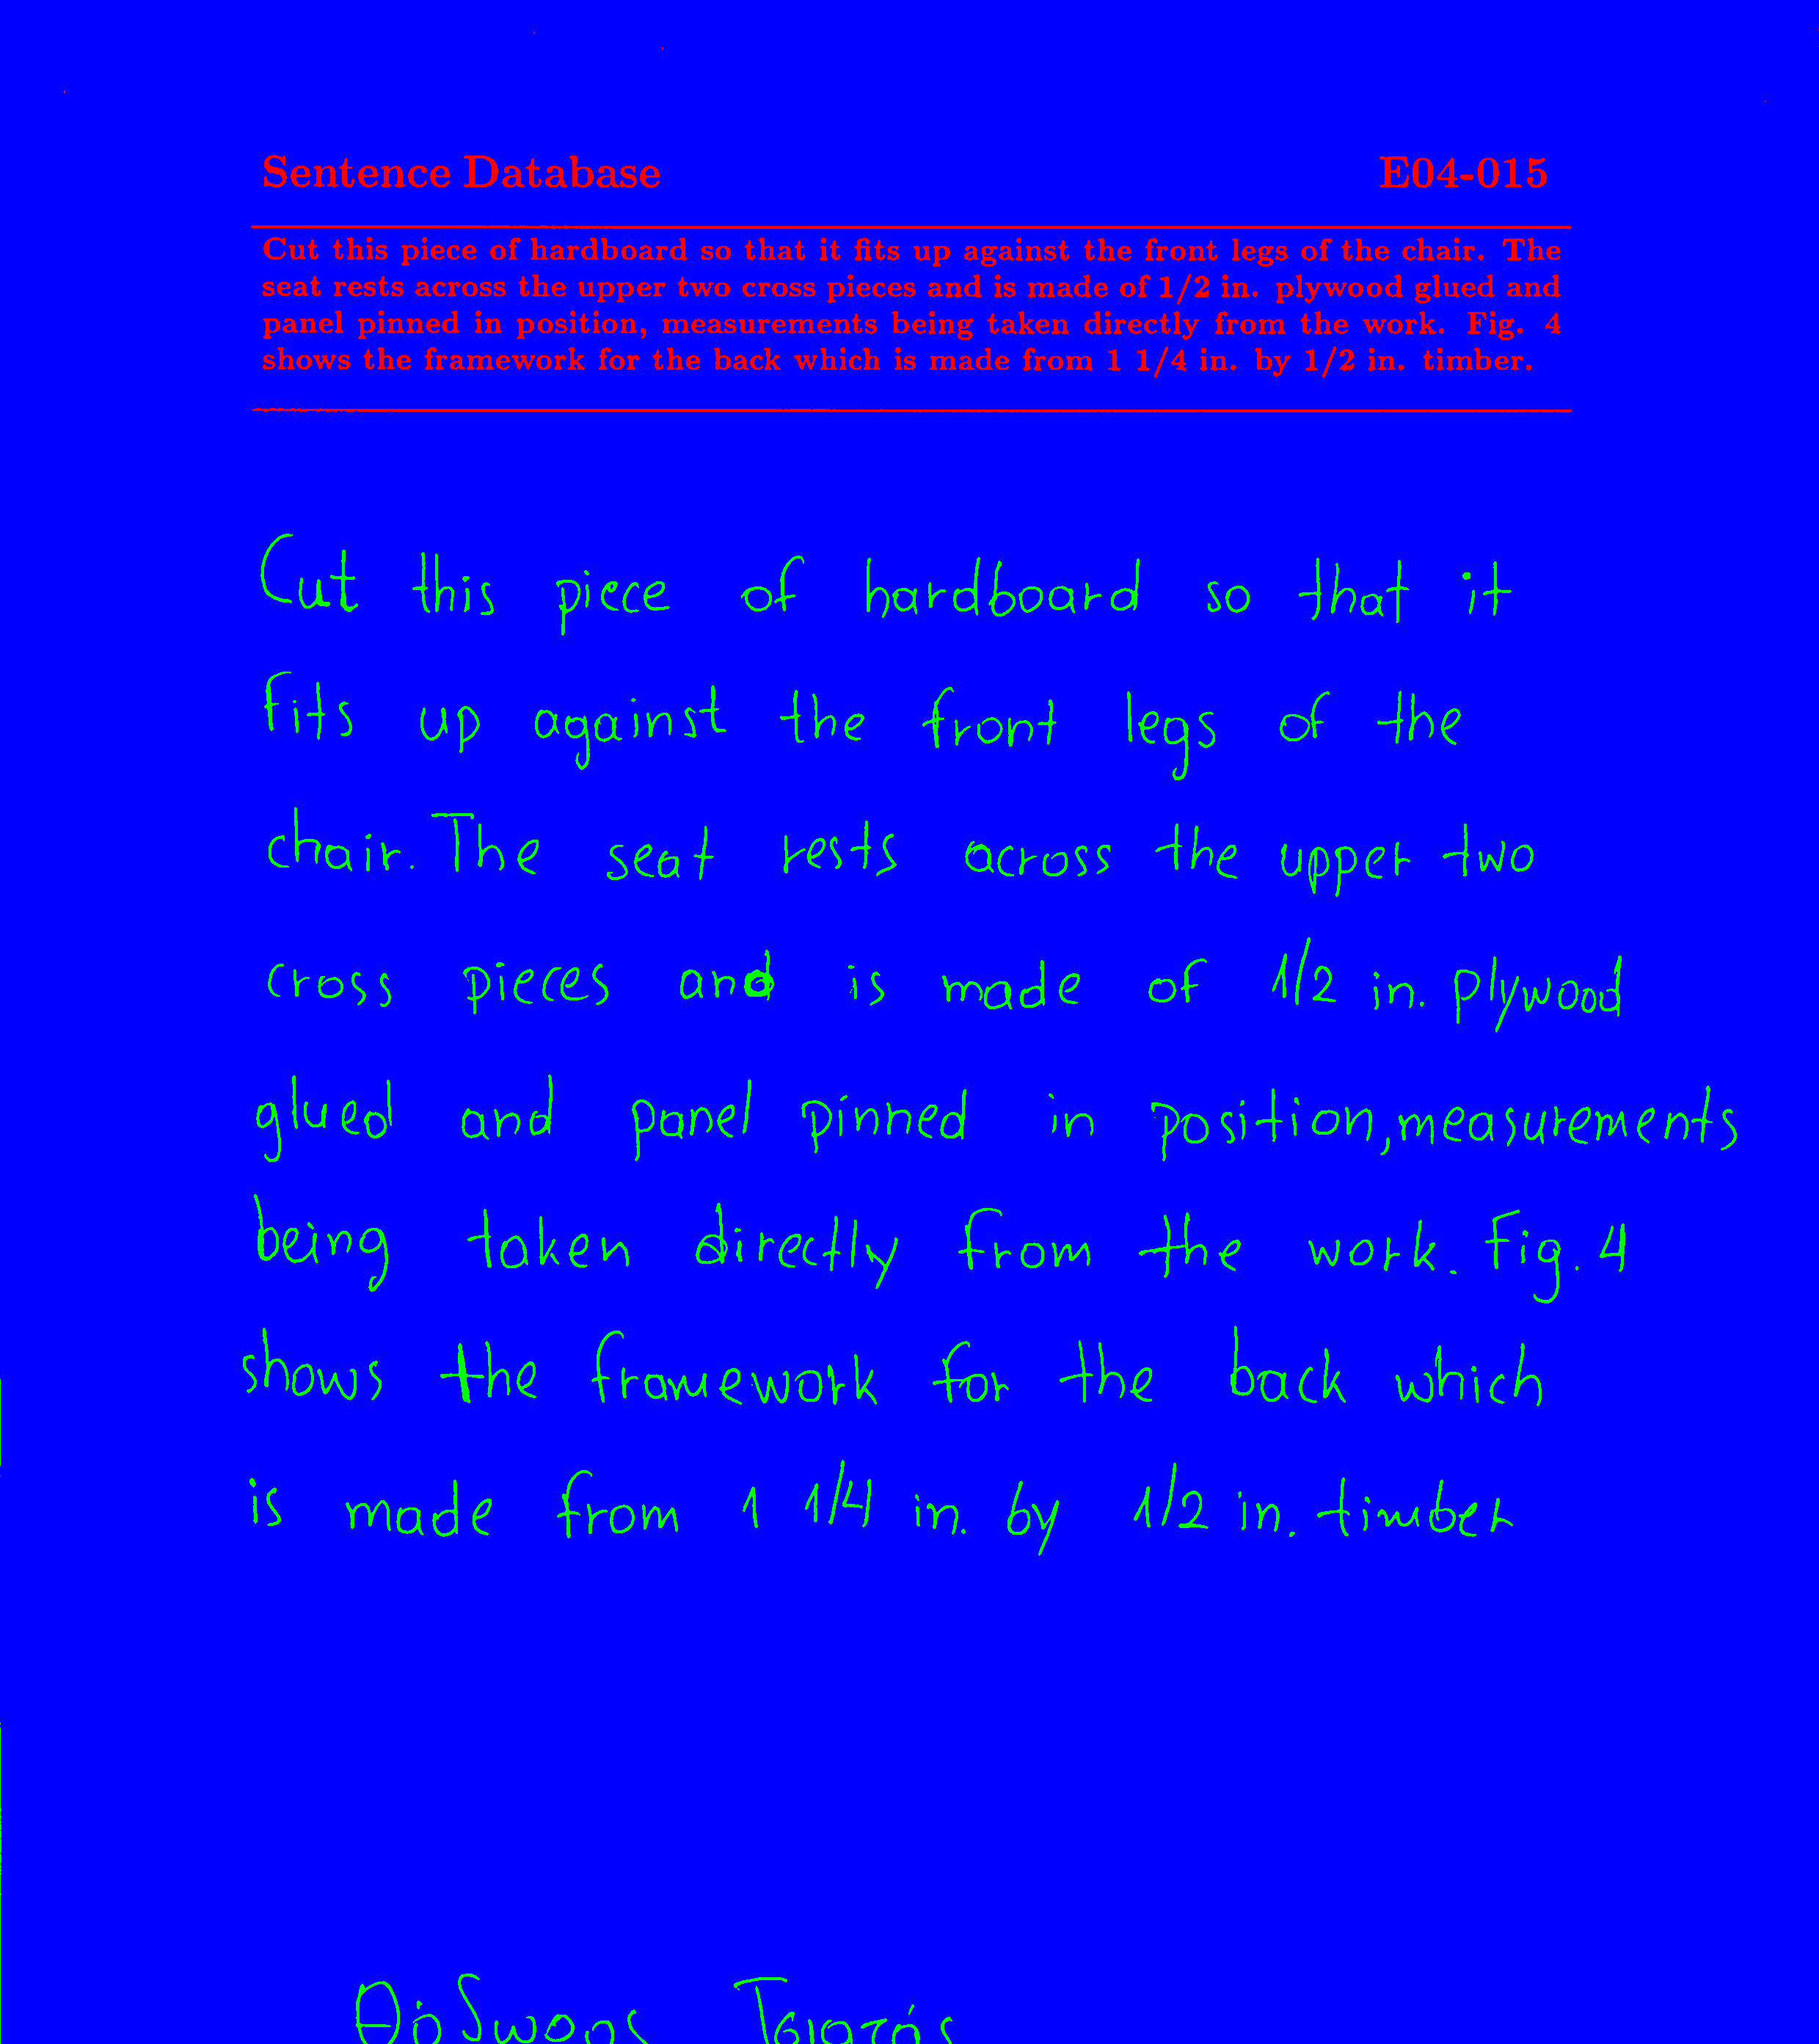 Sentence Database E04-015
Cut this piece of hardboard so that it fits up against the front legs of the chair. The
seat rests across the upper two cross pieces and is made of 1/2 in. plywood glued and
panel pinned in position, measurements being taken directly from the work. Fig. 4
shows the framework for the back which is made from 1 1/4 in. by 1/2 in. timber.
Cut this piece of hardboard so that it
fits up against the front legs of the
chair. The seat rests across the upper two
cross pieces and is made of 1/2 in. plywood
glued and panel pinned in position, measurements
being taken directly from the work. Fig. 4
shows the framework for the back which
is made from 1 1/4 in. by 1/2 in. timber